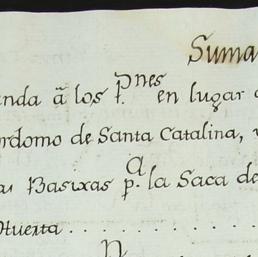 Suma
anda ã los p.nes en lugar
ordomo de Santa Catalina,
Basixas p.a la Saca de
Huerta . . . . . . . . . .